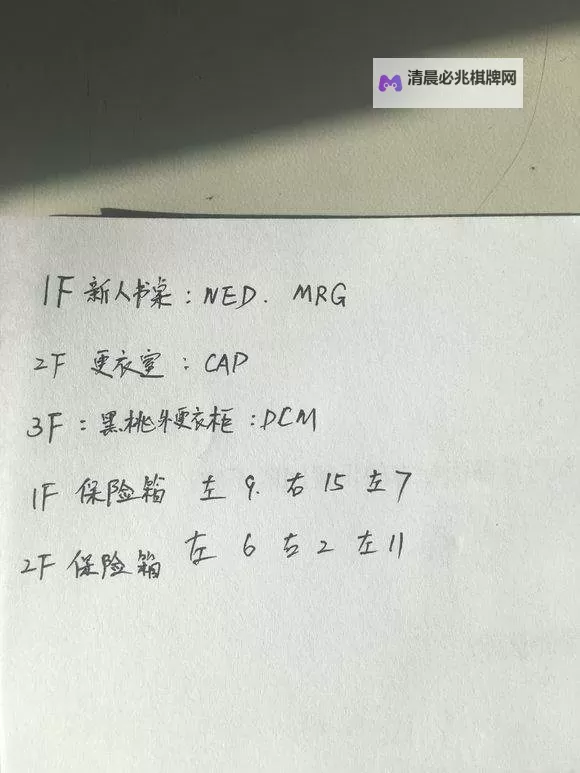 清晨必兆棋牌网
1F 新人书桌：NED. MRG
2F 更衣室：CAP
3F：黑桃更衣柜：DCM
1F 保险箱 左 9. 右 15 左 7
2F 保险箱 左 6 右 2 左 11